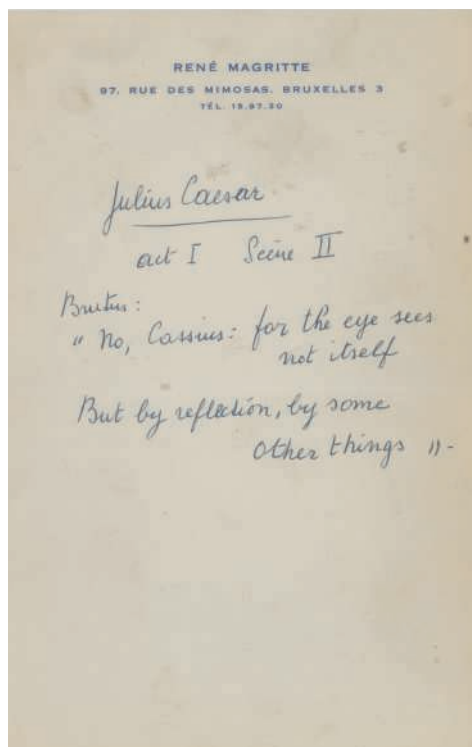 RENÉ MAGRITTE
97, RUE DES MIMOSAS, BRUXELLES 3
TÉL. 15.97.30
Julius Caesar
act I Scène II
Brutus:
" No, Cassius: for the eye sees
not itself
But by reflection, by some
other things "-